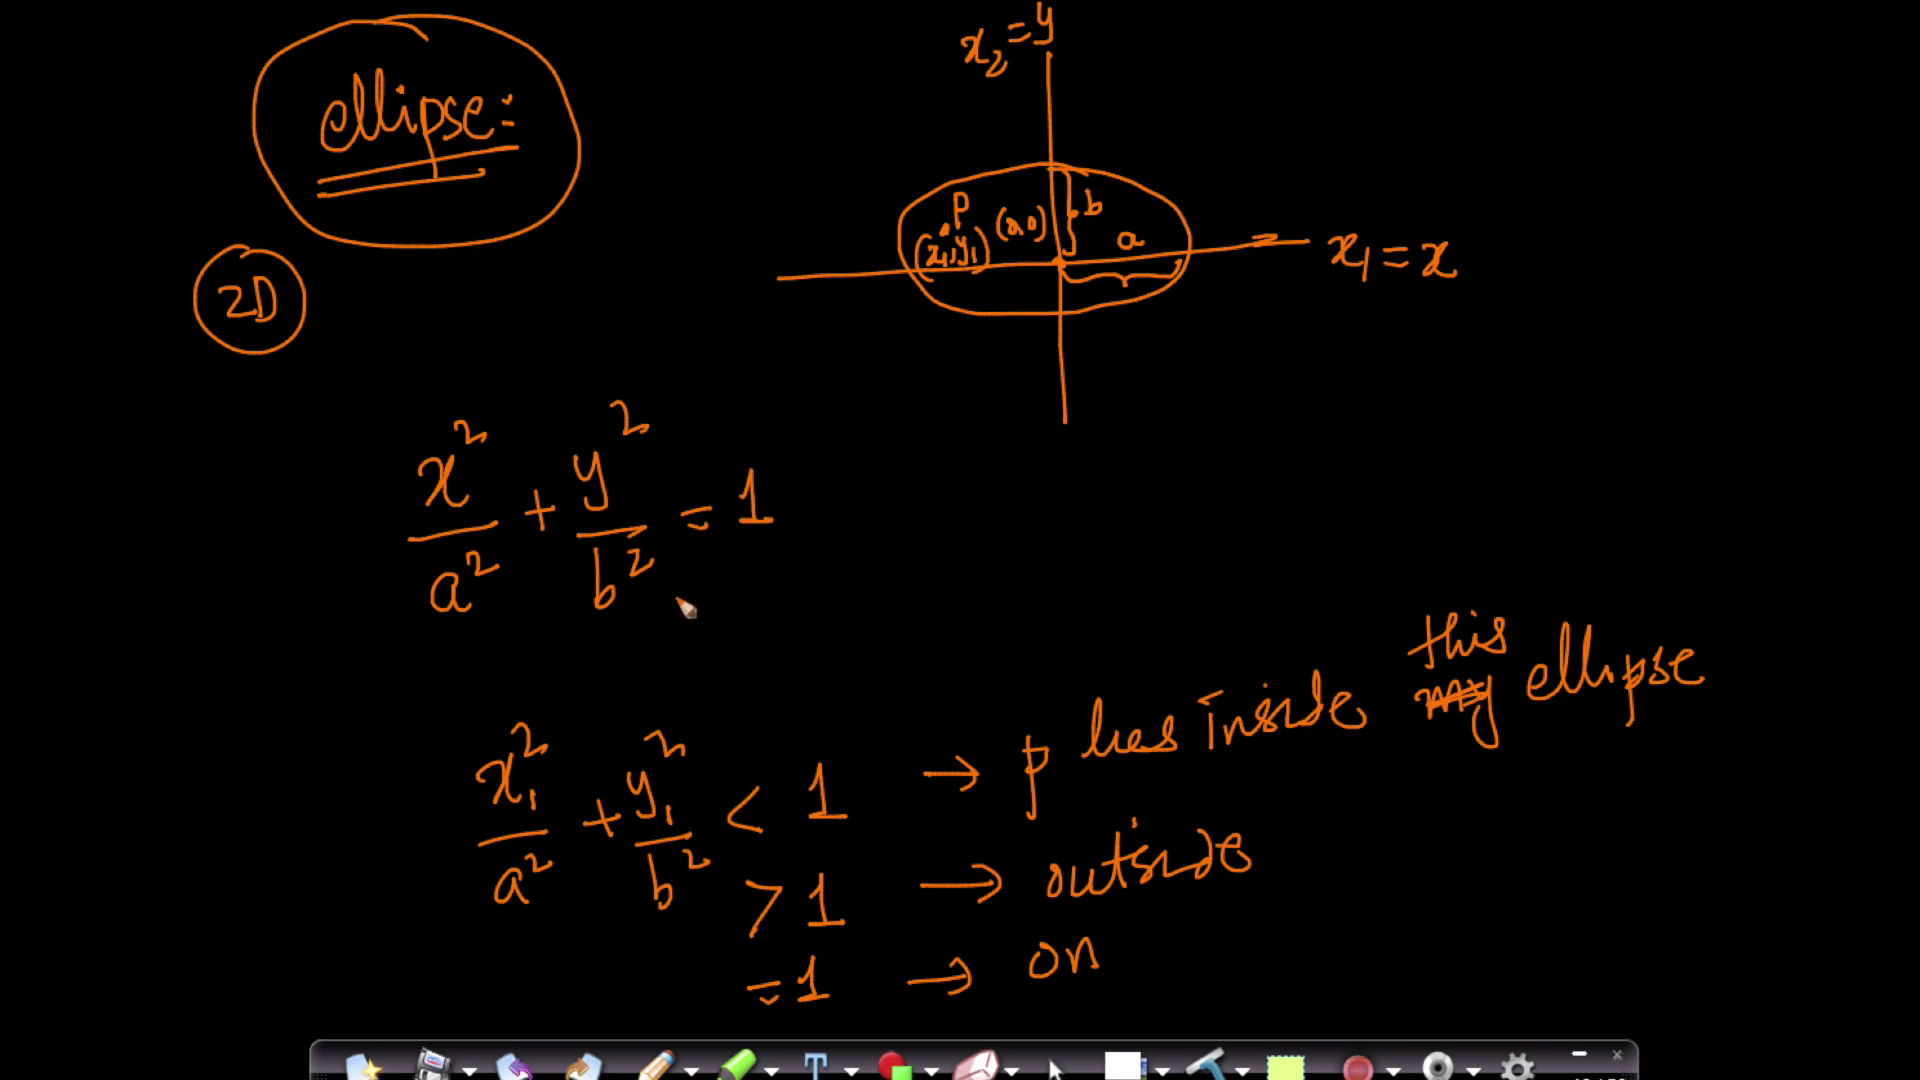 ellipse:
x₂ = y
2D
P
(x₁, y₁)
b
a
x₁ = x
x²/a² + y²/b² = 1
x₁²/a² + y₁²/b² < 1 → p lies inside this ellipse
> 1 → outside
= 1 → on
T